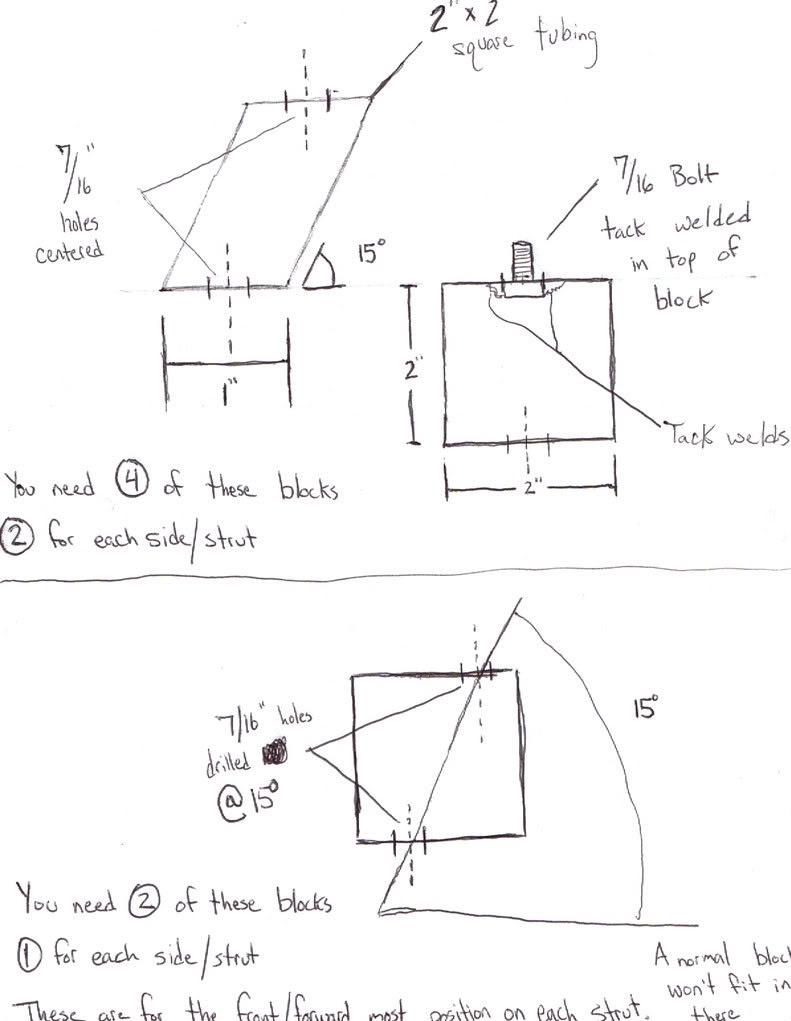 2" x 2
square tubing
7/16"
holes
centered
15°
1"
7/16 Bolt
tack welded
in top of
block
2"
2"
Tack welds
You need 4 of these blocks
2 for each side/strut
7/16" holes
drilled
@ 15°
15°
You need 2 of these blocks
1 for each side/strut
These are for the front/forward most position on each strut.
A normal bloc
won't fit in
there